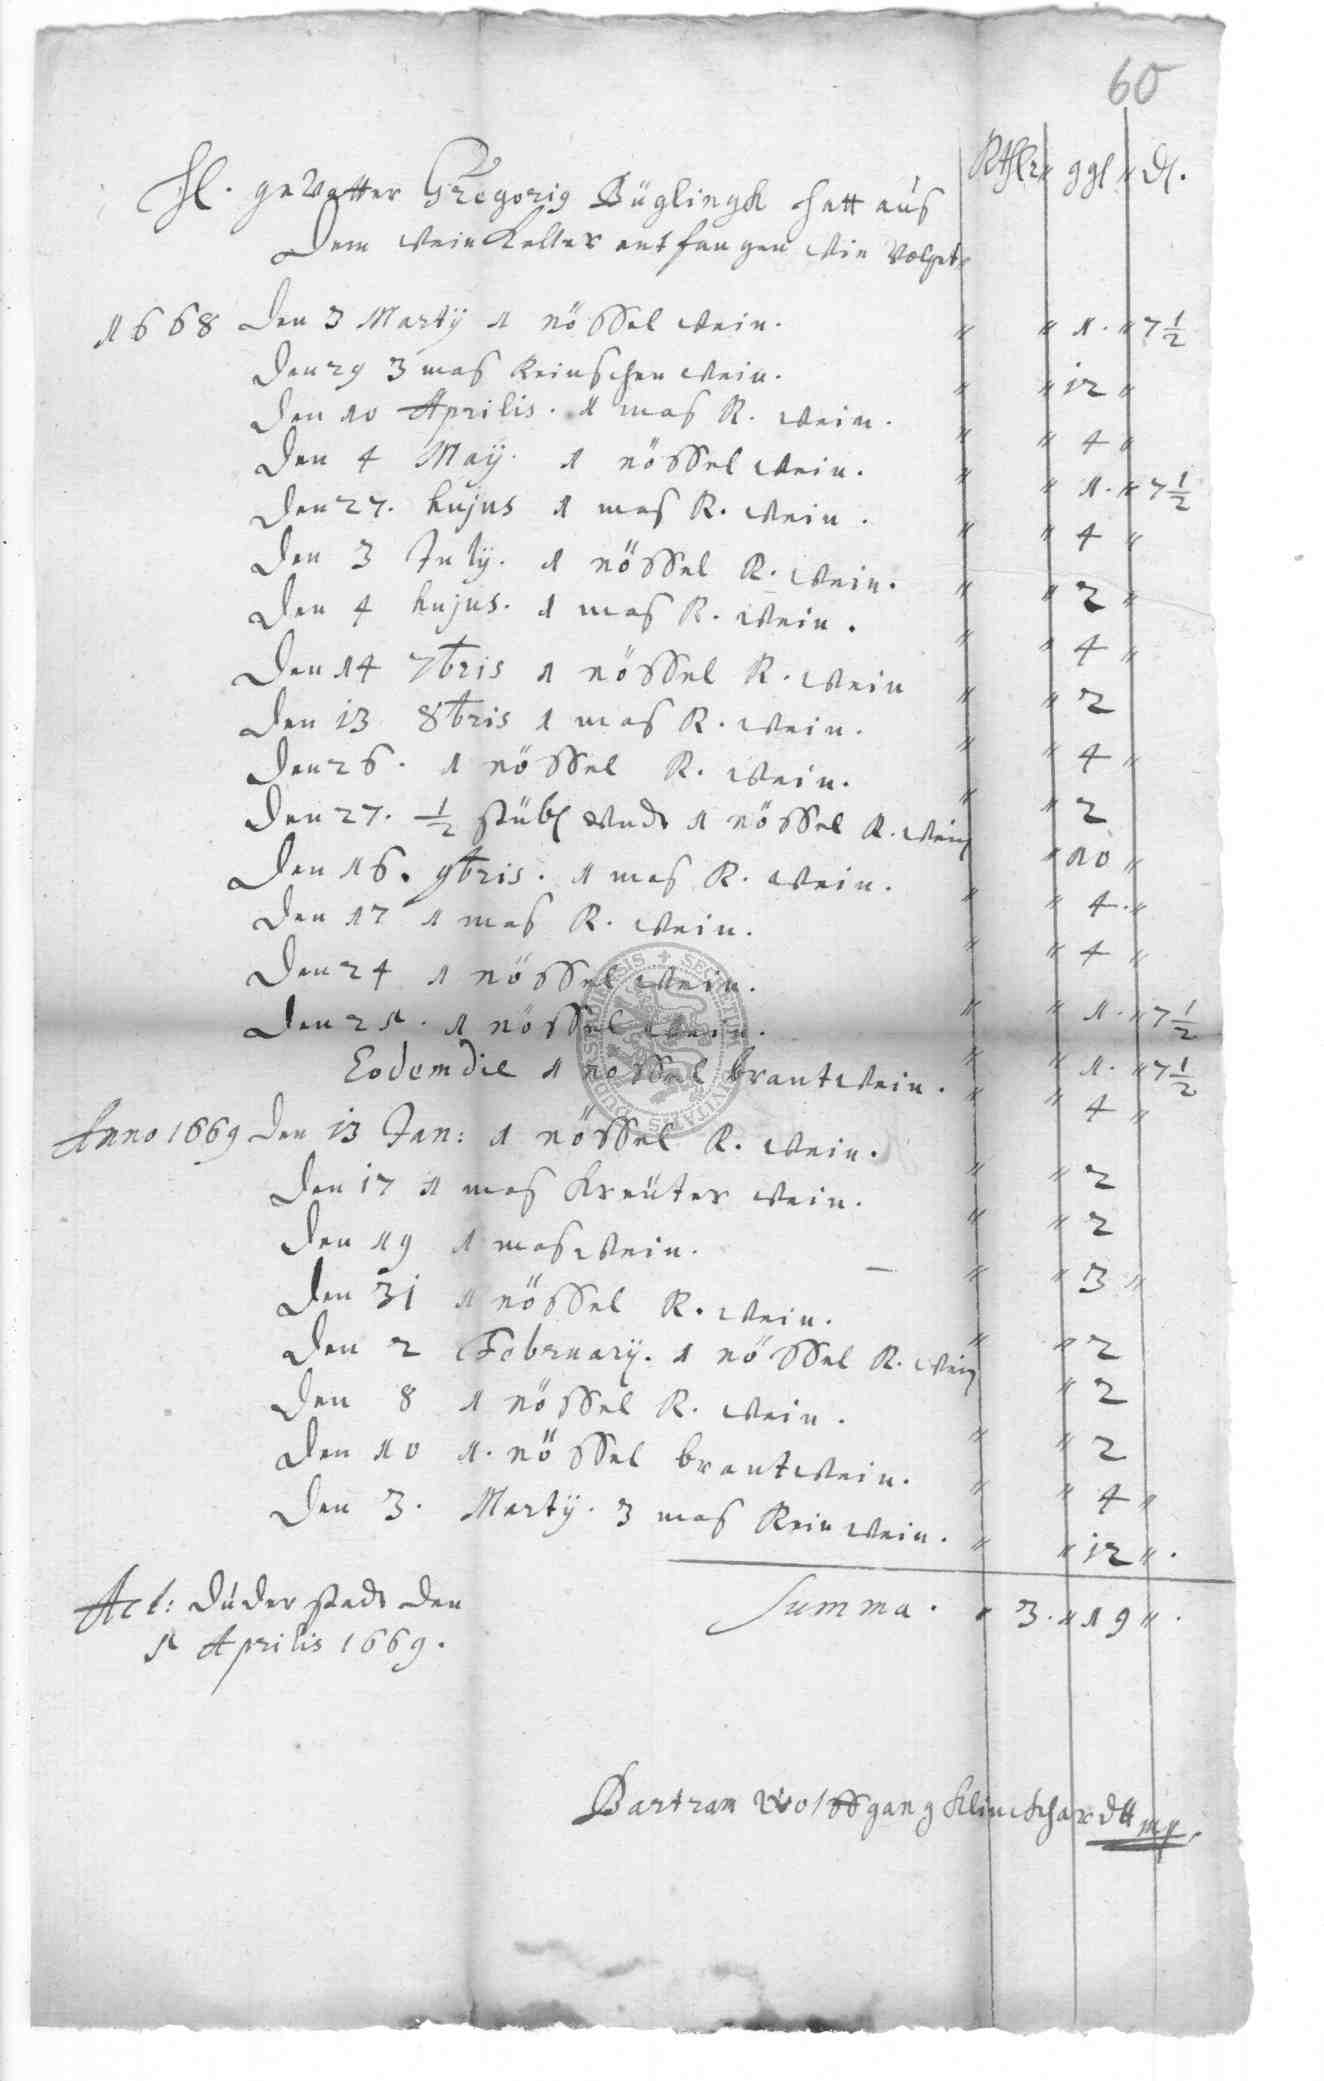 60
Rthlr ggl d.
Hl. gevatter Gregorig Büglingk hatt aus
dem weinkeller entfangen wie volget
1668 den 3 Martÿ 1 nössel wein. " " 1. " 7 1/2
den 29 3 mas Reinschen wein. " " 12 "
den 10 Aprilis. 1 mas R. wein. " " 4 "
den 4 Maÿ. 1 nössel wein. " " 1. " 7 1/2
den 27. hujus 1 mas R. wein. " " 4 "
den 3 Julÿ. 1 nössel R. wein. " " 2 "
den 4 hujus. 1 mas R. wein. " " 4 "
den 14 7bris 1 nössel R. wein " " 2
den 13 8bris 1 mas R. wein. " " 4 "
den 26. 1 nössel R. wein. " " 2
den 27. 1/2 stüb vndt 1 nössel R. wein " 10 "
den 16. 9bris. 1 mas R. wein. " " 4. "
den 17 1 mas R. wein. " " 4 "
den 24 1 nössel wein. " " 1. " 7 1/2
den 25. 1 nössel wein. " " 1. " 7 1/2
Eodem die 1 nössel brantwein. " " 4 "
Anno 1669 den 13 Jan: 1 nössel R. wein. " " 2
den 17 1 mas Kreüter wein. " " 2
den 19 1 mas wein. " " 3 "
den 31 1 nössel R. wein. " " 2
den 2 Februarÿ. 1 nössel R. wein " 2
den 8 1 nössel R. wein. " " 2
den 10 1. nössel brantwein. " " 4 "
den 3. Martÿ. 3 mas Rein wein. " " 12 ".
Summa. " 3. " 19 ".
Act: Düderstadt den
1 Aprilis 1669.
Bartram Wolffgang Klinckhardtt mp.